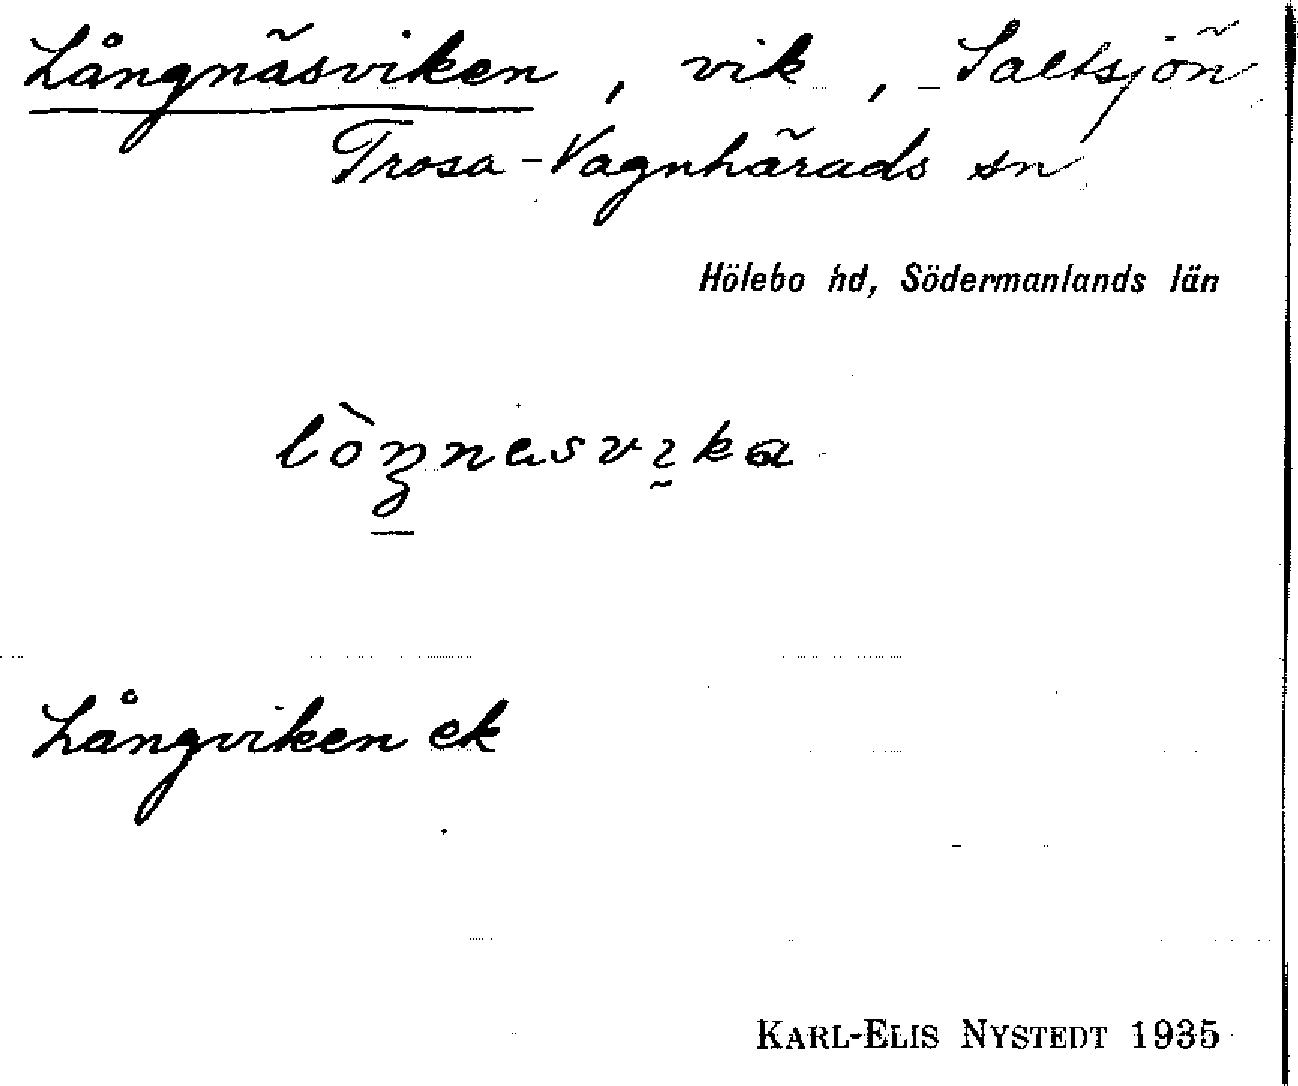 Långnäsviken, vik, Saltsjön
Trosa-Vagnhärads sn
Hölebo hd, Södermanlands län
Långviken ek
KARL-ELIS NYSTEDT 1935